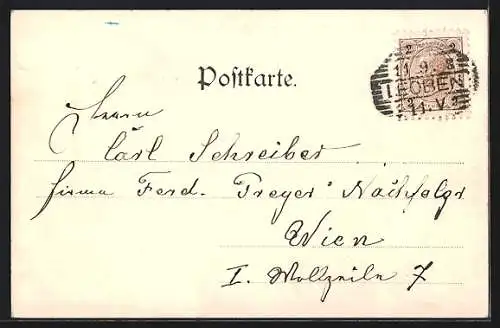 Postkarte.
2 2
11 9 8
LEOBEN
11.V.
Herrn
Carl Schreiber
Firma Ferd. Freyer's Nachfolgr
Wien
I. Wollzeile 7